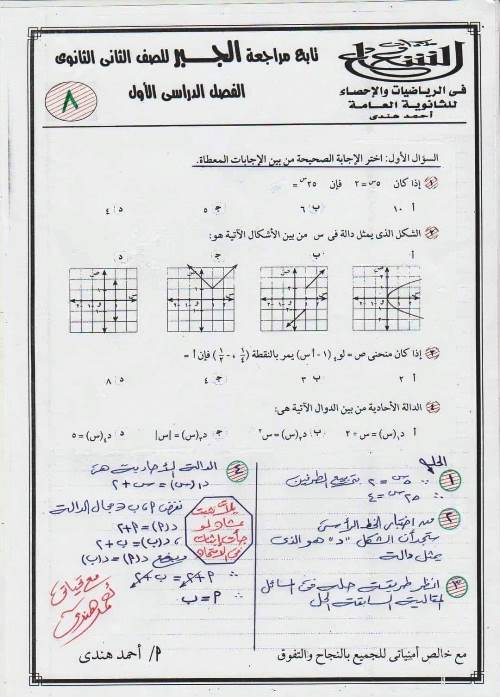 تابع مراجعة الجبر للصف الثانى الثانوى
الفصل الدراسى الأول
٨
فى الرياضيات والإحصاء
للثانوية العامة
أحمد هندى
السؤال الأول: اختر الإجابة الصحيحة من بين الإجابات المعطاة.
١ إذا كان ٥س = ٢ فإن ٢٥س =
أ ١٠ ب ٦ ج ٥ د ٤
٢ الشكل الذى يمثل دالة فى س من بين الأشكال الآتية هو:
أ ب ج د
٣ إذا كان منحنى ص = لو٢ (١ - أ س) يمر بالنقطة (١/٤ ، -١/٢) فإن أ =
أ ٢ ب ٣ ج ٤ د ٨
٤ الدالة الأحادية من بين الدوال الآتية هى:
أ د١(س) = س + ٢ ب د٢(س) = س٢ ج د٣(س) = |س| د د٤(س) = ٥
الحل
١ ∵ ٥س = ٢ بتربيع الطرفين
∴ ٢٥س = ٤
٢ من اختبار الخط الرأسى
ستجد أن الشكل "د" هو الذى
يمثل دالة
٣ انظر طريقة حله فى المسائل
المقالية السابقة الحل
٤ الدالة الأحادية هى
د١(س) = س + ٢
نفرض ٢، ب د مجال الدالة
د(٢) = ٢+٢
، د(ب) = ب+٢
وبوضع د(٢) = د(ب)
∴ ٢+٢ = ب+٢
∴ ٢ = ب
مع تحياتى
أحمد هندى
مع خالص أمنياتى للجميع بالنجاح والتفوق
٢/ أحمد هندى